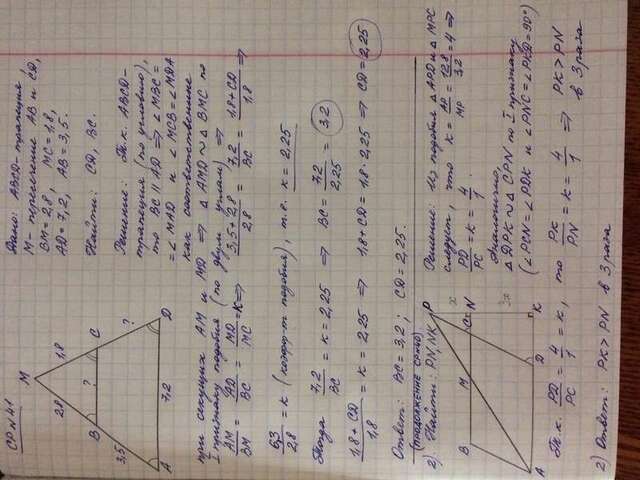 СР N 41
Дано: ABCD-трапеция
M - пересечение AB и CD,
BM = 2,8, MC = 1,8,
AD = 7,2, AB = 3,5.
Найти: CD, BC.
M
2,8
1,8
B
?
C
3,5
?
A
7,2
D
Решение: Т.к. ABCD-
трапеция (по условию),
то BC || AD ⇒ ∠MBC =
= ∠MAD и ∠MCB = ∠MDA
как соответственные
при секущих AM и MD ⇒ △AMD ~ △BMC по
I признаку подобия (по двум углам) ⇒
AM/BM = AD/BC = MD/MC = k ⇒ (3,5+2,8)/2,8 = 7,2/BC = (1,8+CD)/1,8 ⇒
6,3/2,8 = k (коэфф-т подобия), т.е. k = 2,25
Тогда 7,2/BC = k = 2,25 ⇒ BC = 7,2/2,25 = 3,2
(1,8+CD)/1,8 = k = 2,25 ⇒ 1,8+CD = 1,8·2,25 ⇒ CD = 2,25
Ответ: BC = 3,2; CD = 2,25.
(продолжение)
2). Найти: PN, NK
B
M
C
N
P
x
3x
A
D
K
Решение: Из подобия △APD и △MPC
следует, что k = AD/MP = 12,8/3,2 = 4 ⇒
PD/PC = k = 4/1.
Аналогично,
△DPK ~ △CPN по I признаку
(∠PCN = ∠PDK и ∠PNC = ∠PKD = 90°)
Т.к. PD/PC = 4/1 = k, то PK/PN = k = 4/1 ⇒ PK > PN
в 3 раза
2) Ответ: PK > PN в 3 раза